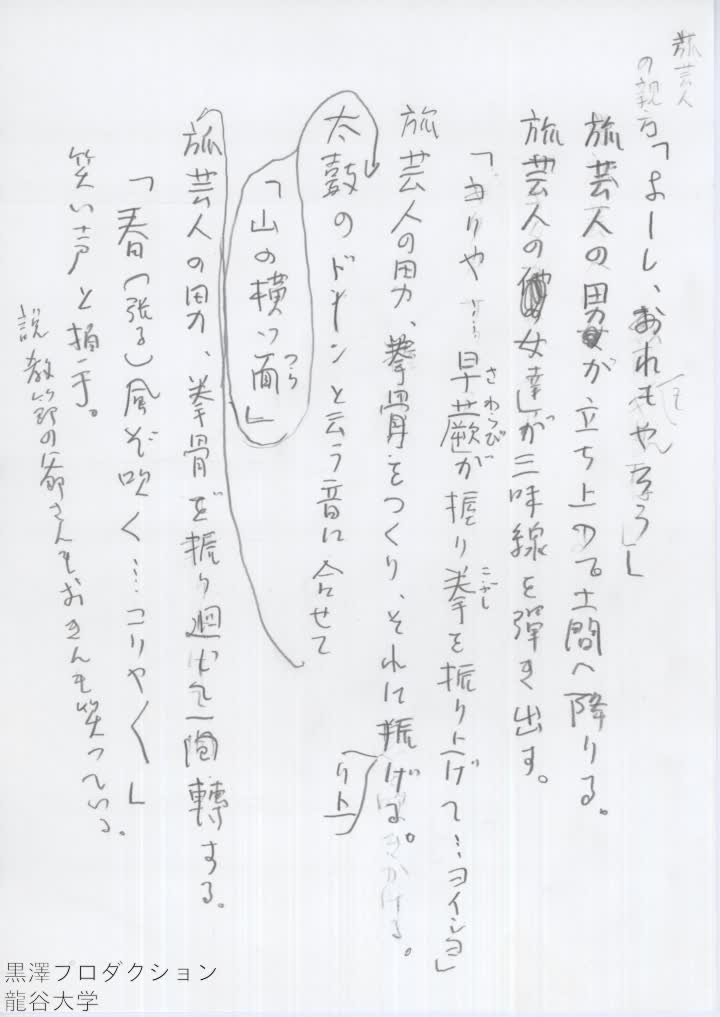 旅芸人
の親方「よーし、おれもやろう」
旅芸人の男が立ち上って土間へ降りる。
旅芸人の女達が三味線を弾き出す。
「コリャ…早蕨が握り拳を振り上げて…ヨイショ」
さわらび
こぶし
旅芸人の男、拳骨をつくり、それに振り上げる。
太鼓のドーンと云う音に合せて
「山の横ッ面」
つら
旅芸人の男、拳骨を振り廻して一回轉する。
「春(張る)風ぞ吹く…コリャ〱」
笑い声と拍手。
説教節の爺さんもおきんも笑っている。
黒澤プロダクション
龍谷大学